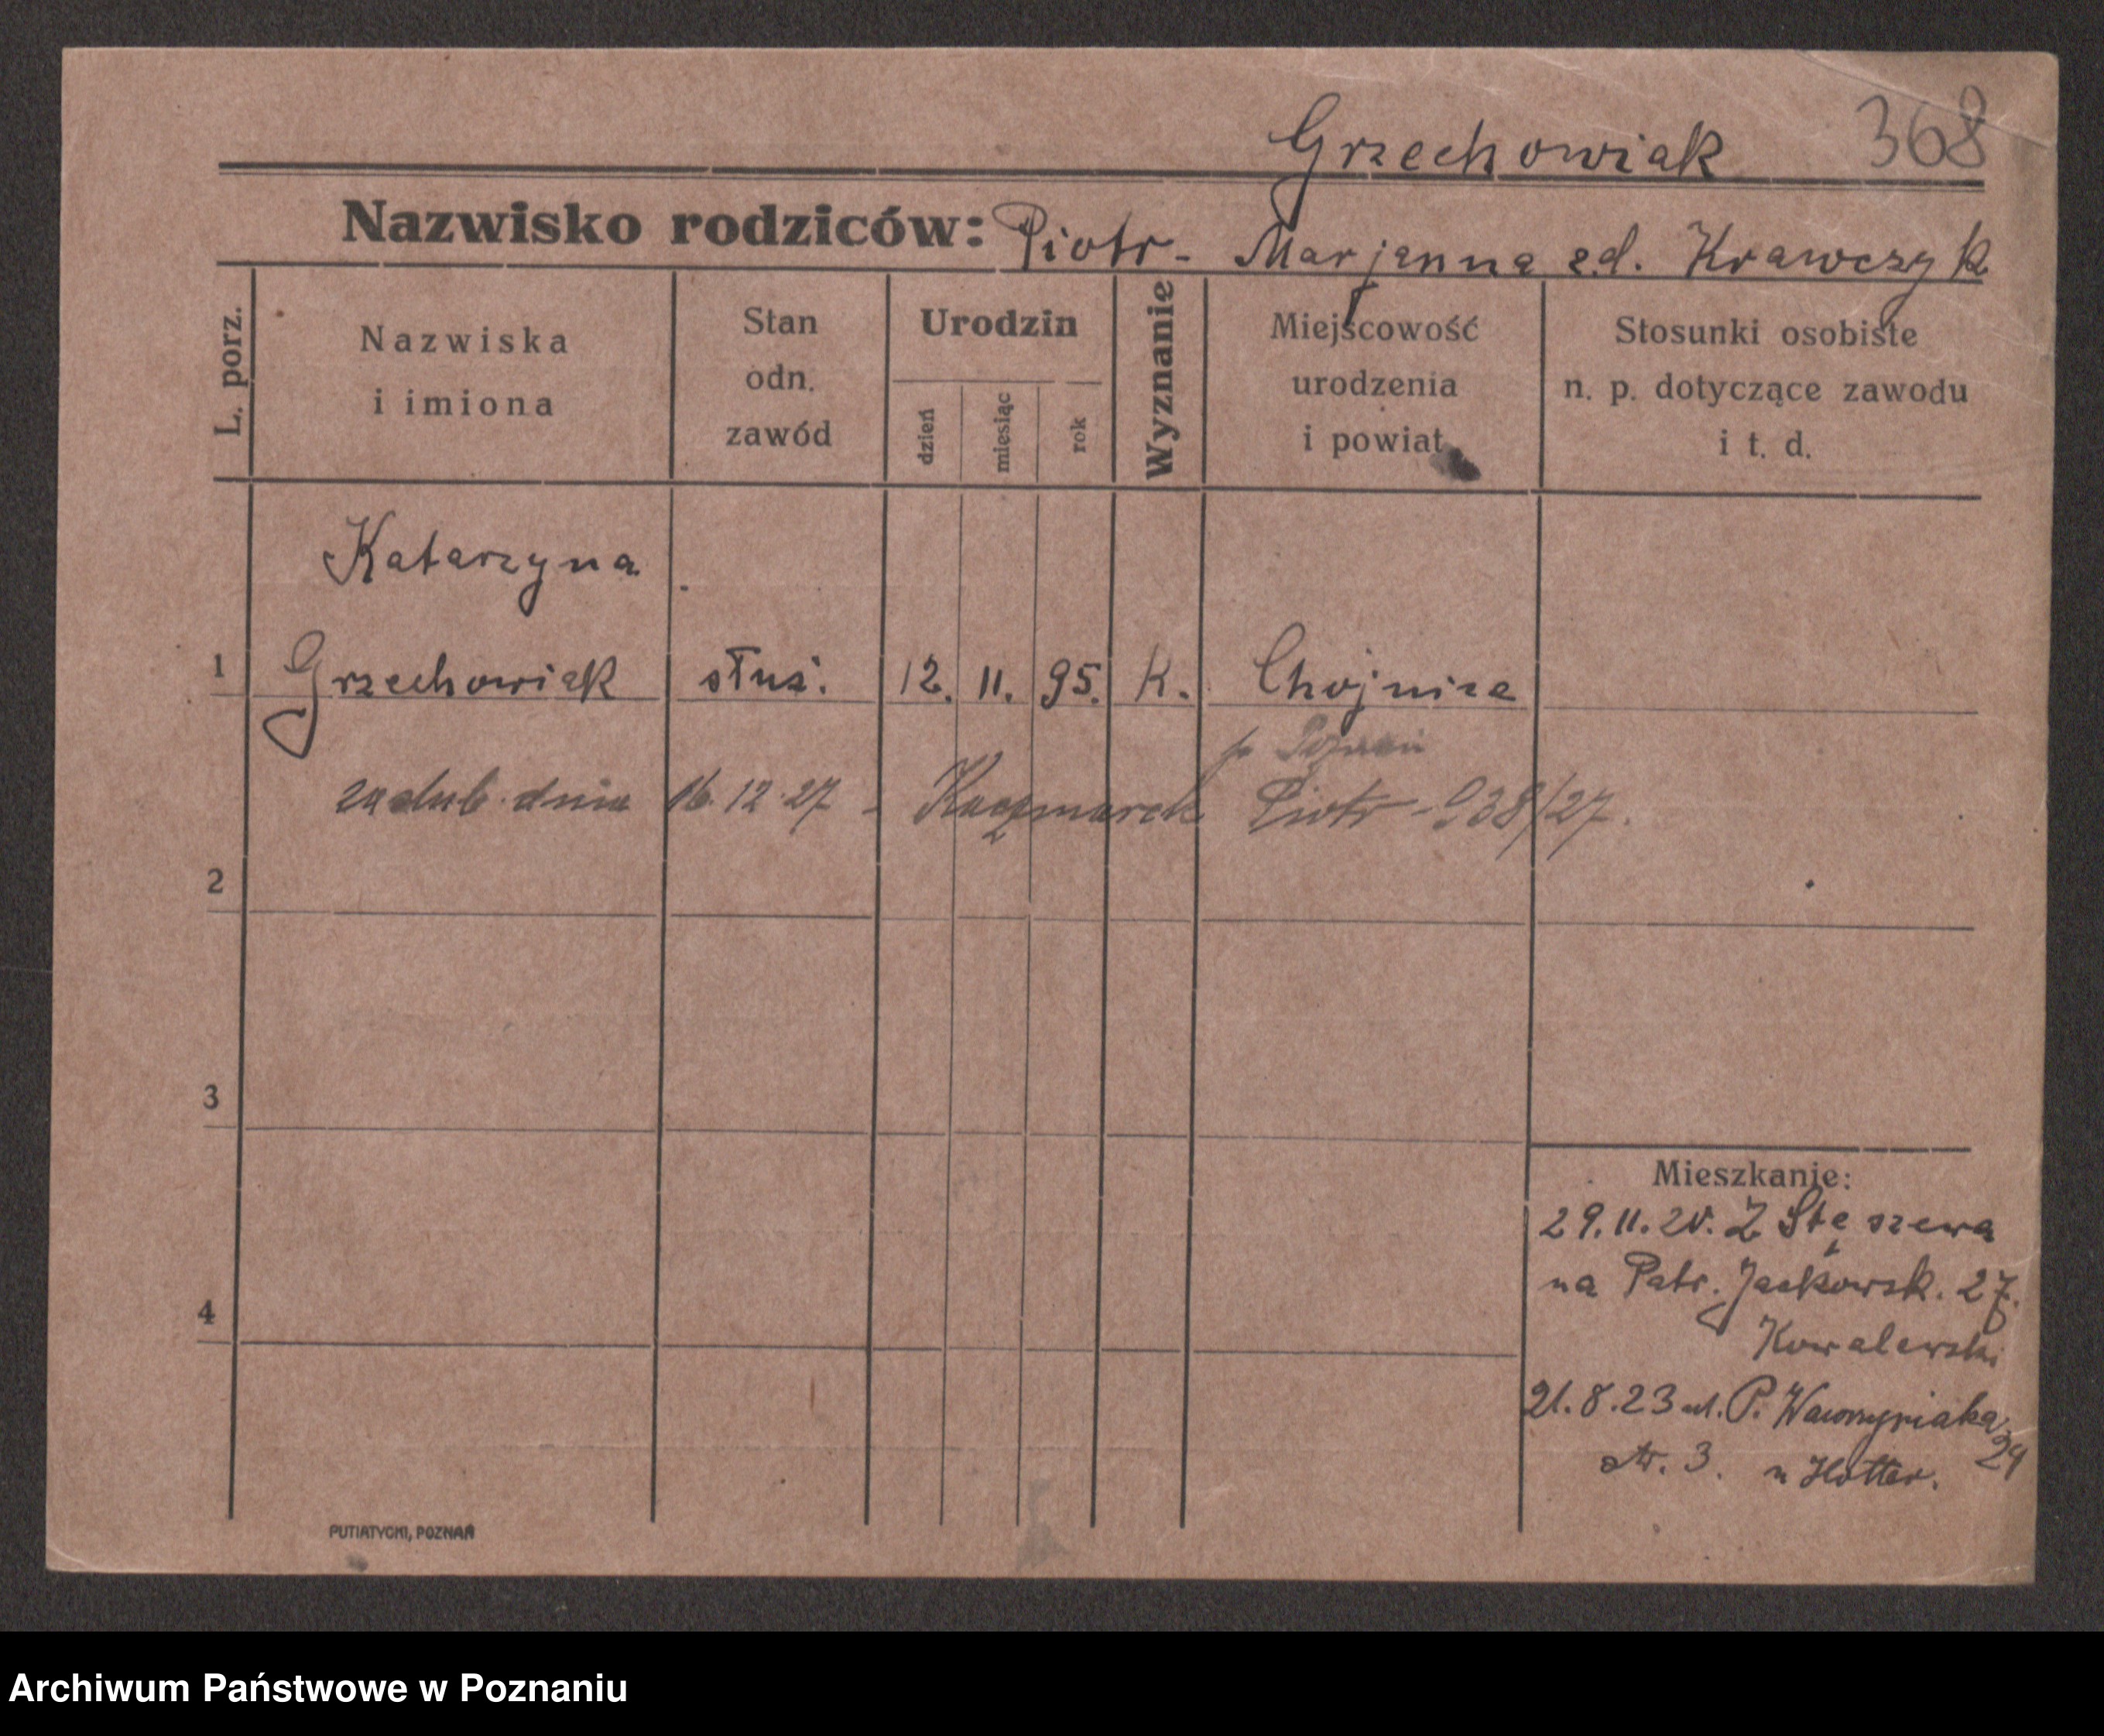 Grzechowiak 368
Nazwisko rodziców: Piotr - Marjanna zd. Krawczyk
L. porz.
Nazwiska
i imiona
Stan
odn.
zawód
Urodzin
dzień
miesiąc
rok
Wyznanie
Miejscowość
urodzenia
i powiat
Stosunki osobiste
n. p. dotyczące zawodu
i t. d.
Katarzyna
1 Grzechowiak służ. 12. 11. 95. K. Chojnica
p Poznań
zaślub. dnia 16.12.27 - Kaczmarek Piotr - 938/27.
2
3
4
Mieszkanie:
29.11.20. Z Stęszewa
na Patr. Jackowsk. 27.
Kowalewski
21.8.23 ul. P. Wawrzyniaka 24
str. 3. u Hotter.
PUTIATYCKI, POZNAŃ
Archiwum Państwowe w Poznaniu